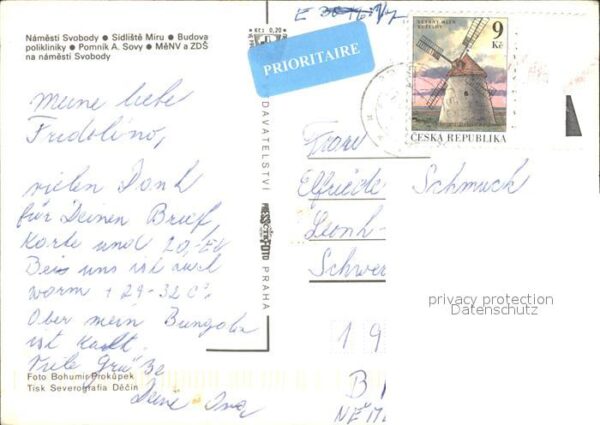 Náměstí Svobody ● Sídliště Míru ● Budova
polikliniky ● Pomník A. Sovy ● MěNV a ZDŠ
na náměstí Svobody
Kčs 0,20
PRIORITAIRE
VĚTRNÝ MLÝN
9
Kč
ČESKÁ REPUBLIKA
meine liebe
Fridolino,
vielen Dank
für Deinen Brief,
Karte und 20,-EU
Bei uns ist auch
warm + 29-32 C°
Aber mein Bungolo
ist kalt.
Viele Grüße
Deine
DAVATELSTVÍ
PRAHA
Frau
Elfriede Schmuck
Leonh-
Schwer
privacy protection
Datenschutz
1 9
B
NĚM
Foto Bohumír Prokůpek
Tisk Severografia Děčín